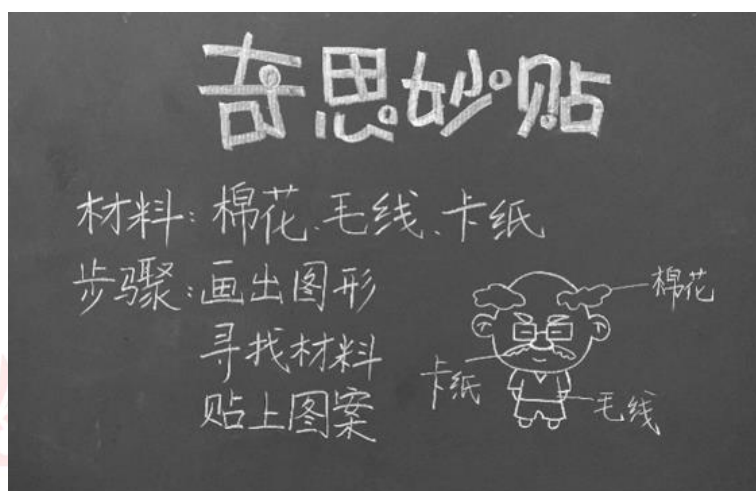 奇思妙贴
材料：棉花、毛线、卡纸
步骤：画出图形
寻找材料
贴上图案
棉花
卡纸
毛线